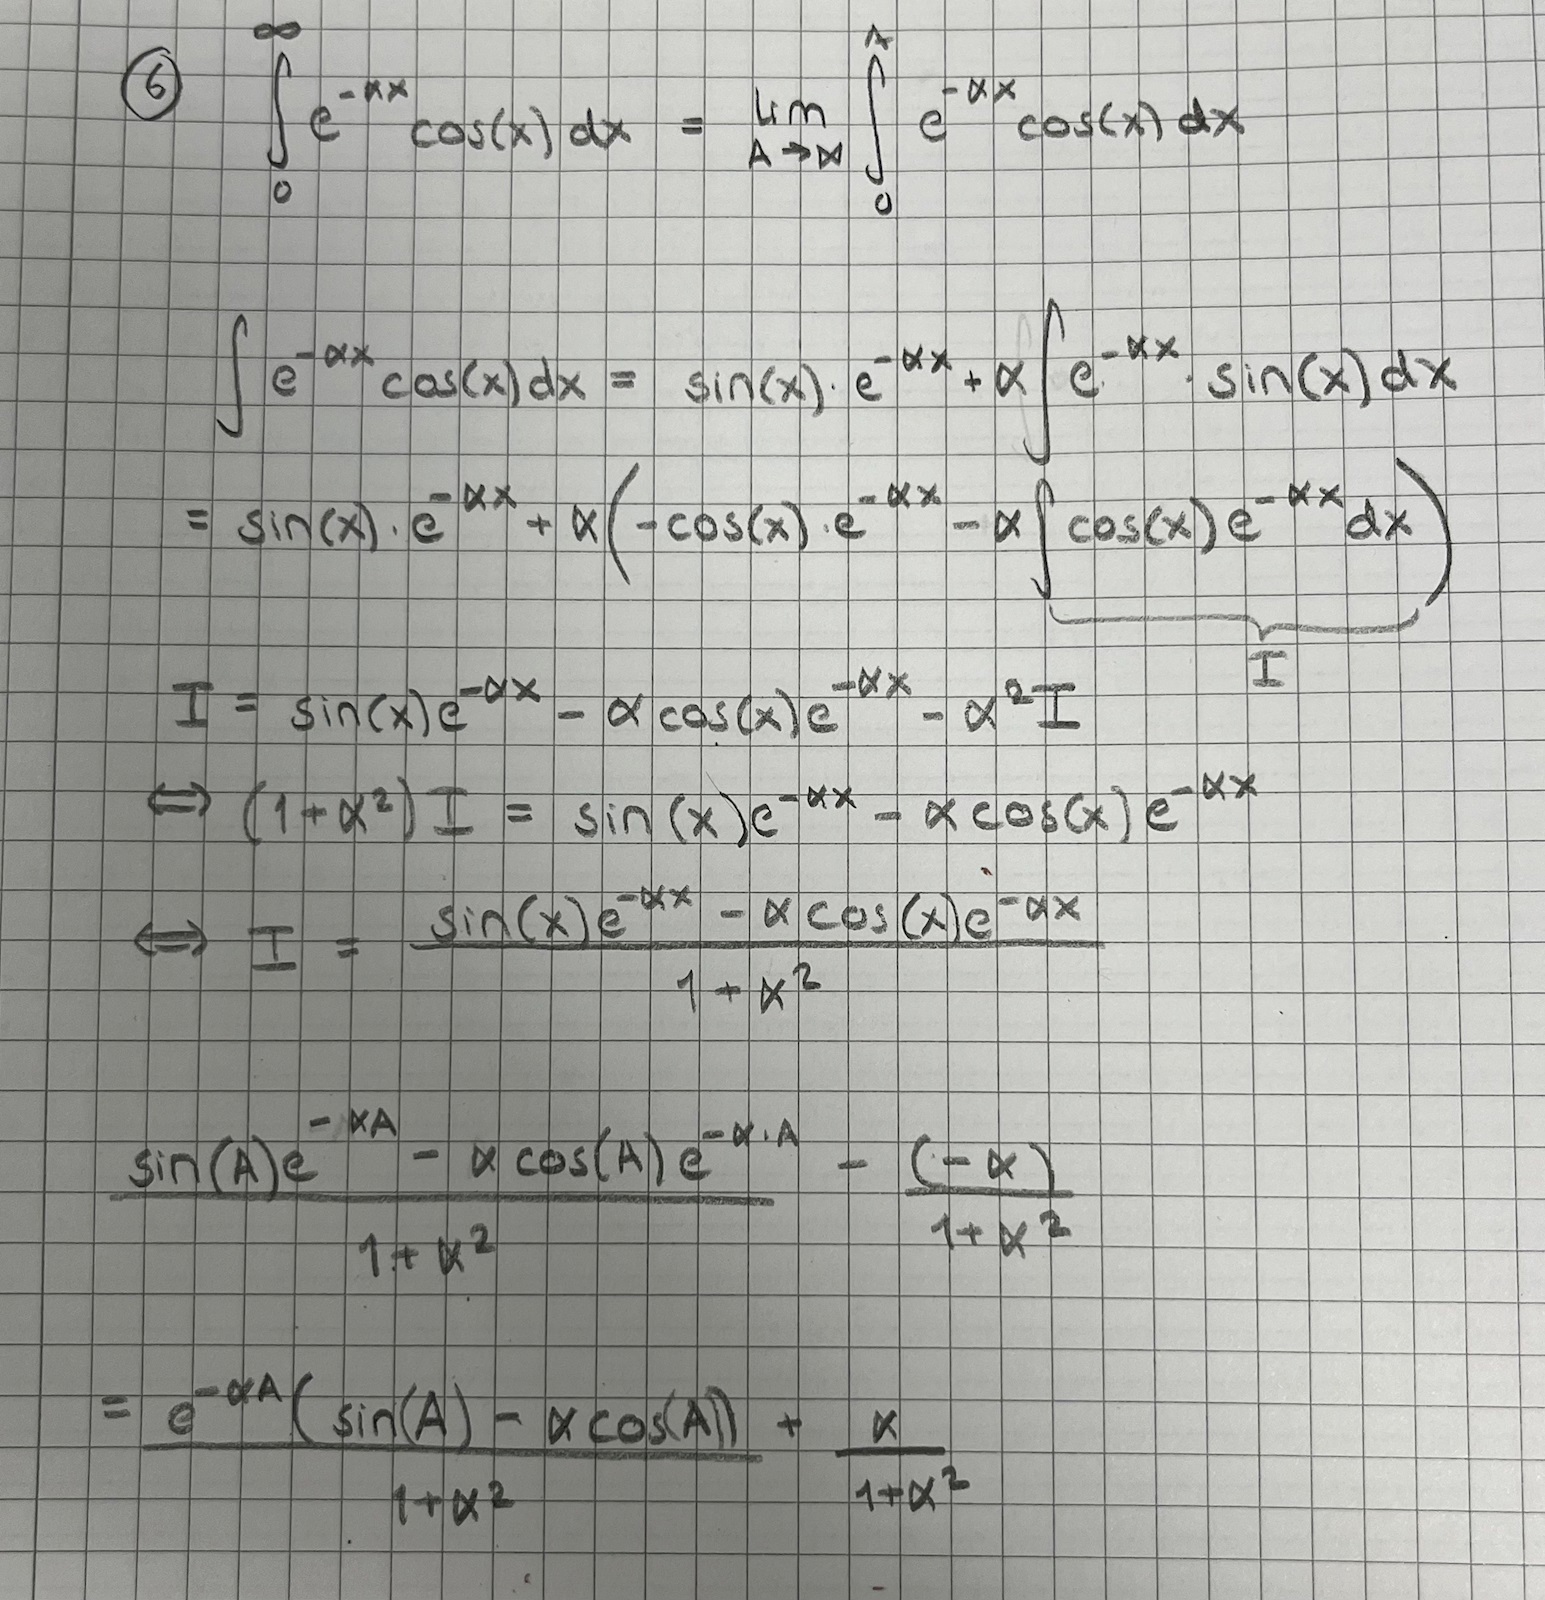 ⑥ ∫₀^∞ e^{-αx} cos(x) dx = lim_{A→∞} ∫₀^A e^{-αx} cos(x) dx
∫ e^{-αx} cos(x) dx = sin(x)·e^{-αx} + α ∫ e^{-αx}·sin(x) dx
= sin(x)·e^{-αx} + α(-cos(x)·e^{-αx} - α ∫ cos(x) e^{-αx} dx)
I
I = sin(x)e^{-αx} - α cos(x)e^{-αx} - α² I
⇔ (1+α²) I = sin(x)e^{-αx} - α cos(x) e^{-αx}
⇔ I = \frac{sin(x)e^{-αx} - α cos(x)e^{-αx}}{1+α²}
\frac{sin(A)e^{-αA} - α cos(A) e^{-α·A}}{1+α²} - \frac{(-α)}{1+α²}
= \frac{e^{-αA}(sin(A) - α cos(A))}{1+α²} + \frac{α}{1+α²}